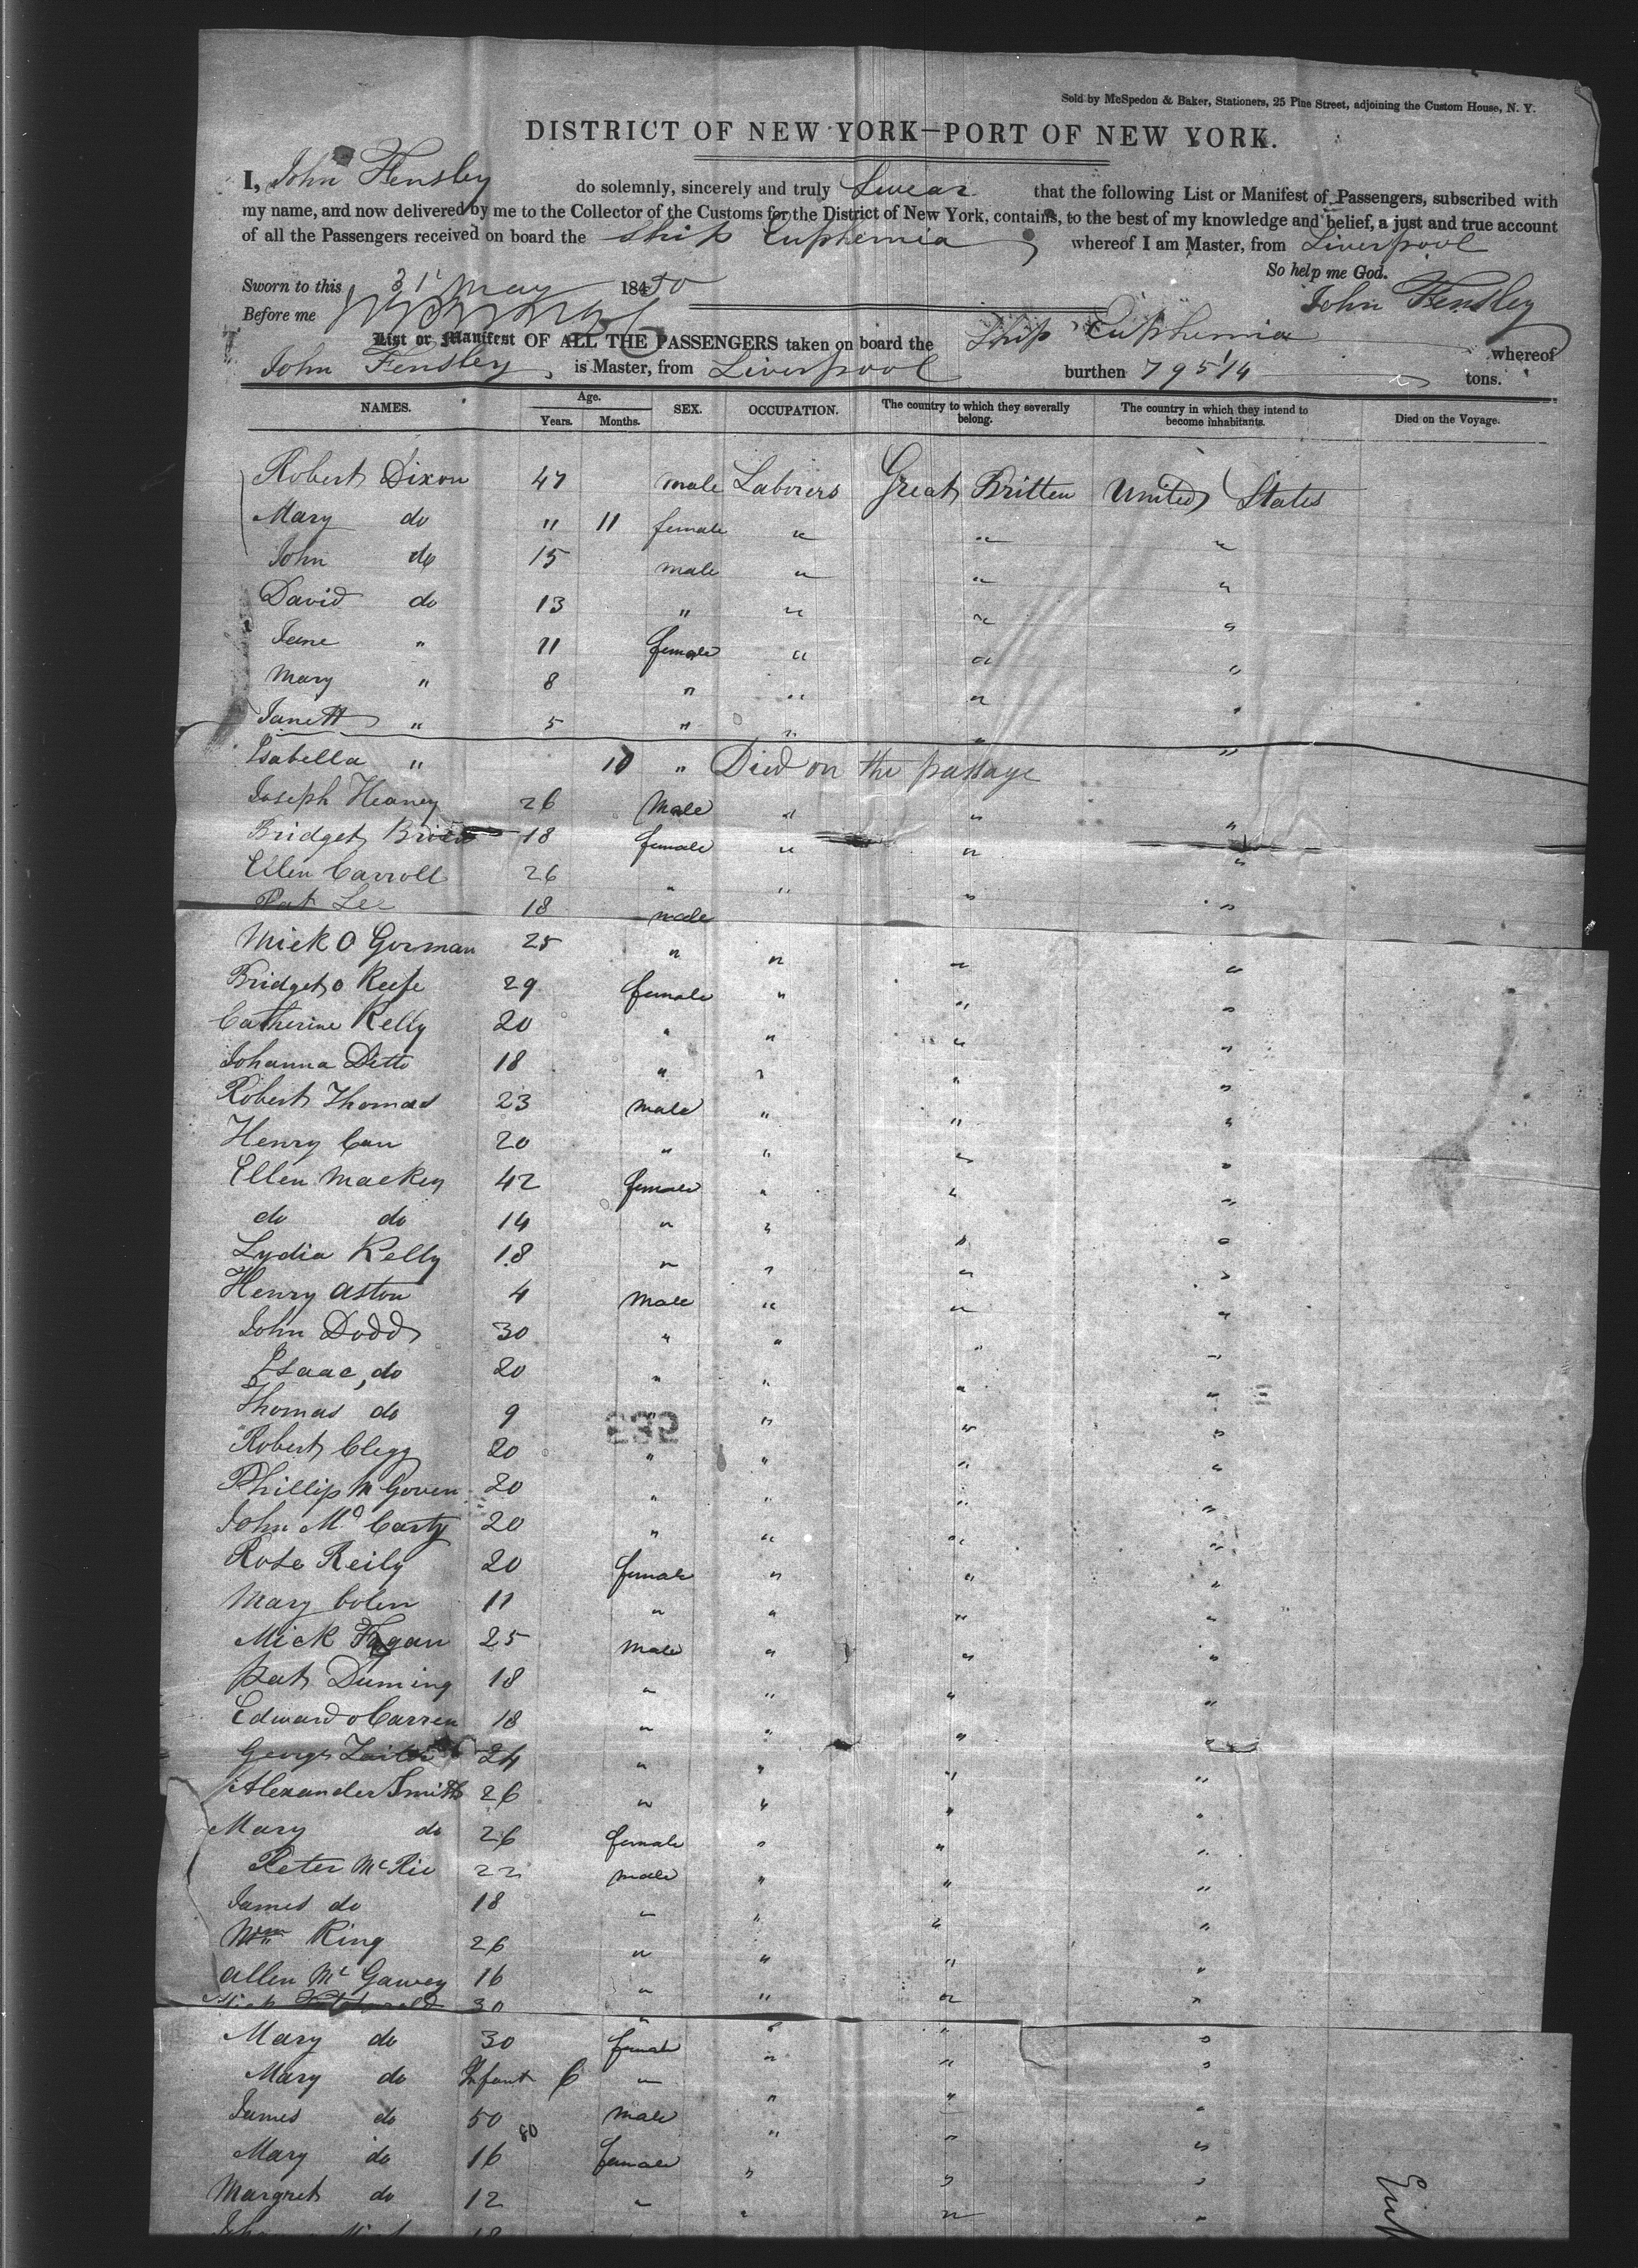 Sold by McSpedon & Baker, Stationers, 25 Pine Street, adjoining the Custom House, N. Y.
DISTRICT OF NEW YORK—PORT OF NEW YORK.
I, John Fensley do solemnly, sincerely and truly Swear that the following List or Manifest of Passengers, subscribed with
my name, and now delivered by me to the Collector of the Customs for the District of New York, contains, to the best of my knowledge and belief, a just and true account
of all the Passengers received on board the Ship Euphemia, whereof I am Master, from Liverpool
So help me God.
Sworn to this 31 May 1850
John Fensley
Before me
List or Manifest OF ALL THE PASSENGERS taken on board the Ship Euphemia whereof
John Fensley, is Master, from Liverpool burthen 795 14 tons.
NAMES. Age. Years. Months. SEX. OCCUPATION. The country to which they severally belong. The country in which they intend to become inhabitants. Died on the Voyage.
Robert Dixon 47 male Laborers Great Britten United States
Mary do " 11 female " " "
John do 15 male " " "
David do 13 " " " "
Jane " 11 female " " "
Mary " 8 " " " "
Janett " 5 " " " "
Isabella " 10 " Died on the passage "
Joseph Heaney 26 Male " " "
Bridget Brien 18 female " " "
Ellen Carroll 26 " " " "
Pat Lee 18 male
Mick O Gorman 25 " " " "
Bridget O Keefe 29 female " " "
Catherine Kelly 20 " " " "
Johanna Ditto 18 " " " "
Robert Thomas 23 male " " "
Henry Can 20 " " " "
Ellen Mackey 42 female " " "
do do 14 " " " "
Lydia Kelly 18 " " " "
Henry Aston 4 Male " " "
John Dodd 30 " " " "
Isaac, do 20 " " " "
Thomas do 9 " " " "
Robert Clegg 20 " " " "
Phillip M Goven 20 " " " "
John Mc Carty 20 " " " "
Rose Reily 20 female " " "
Mary Colen 11 " " " "
Mick Fagan 25 Male " " "
Pat Duming 18 " " " "
Edward Carren 18 " " " "
George 24 " " " "
Alexander Smith 26 " " " "
Mary do 26 female " " "
Peter McRie 22 male " " "
James do 18 " " " "
Wm King 26 " " " "
Allen Mc Gawey 16 " " " "
30 " " " "
Mary do 30 female " " "
Mary do Infant 6 " " " "
James do 50 male " " "
80
Mary do 16 female " " "
Margret do 12 " " " "
18